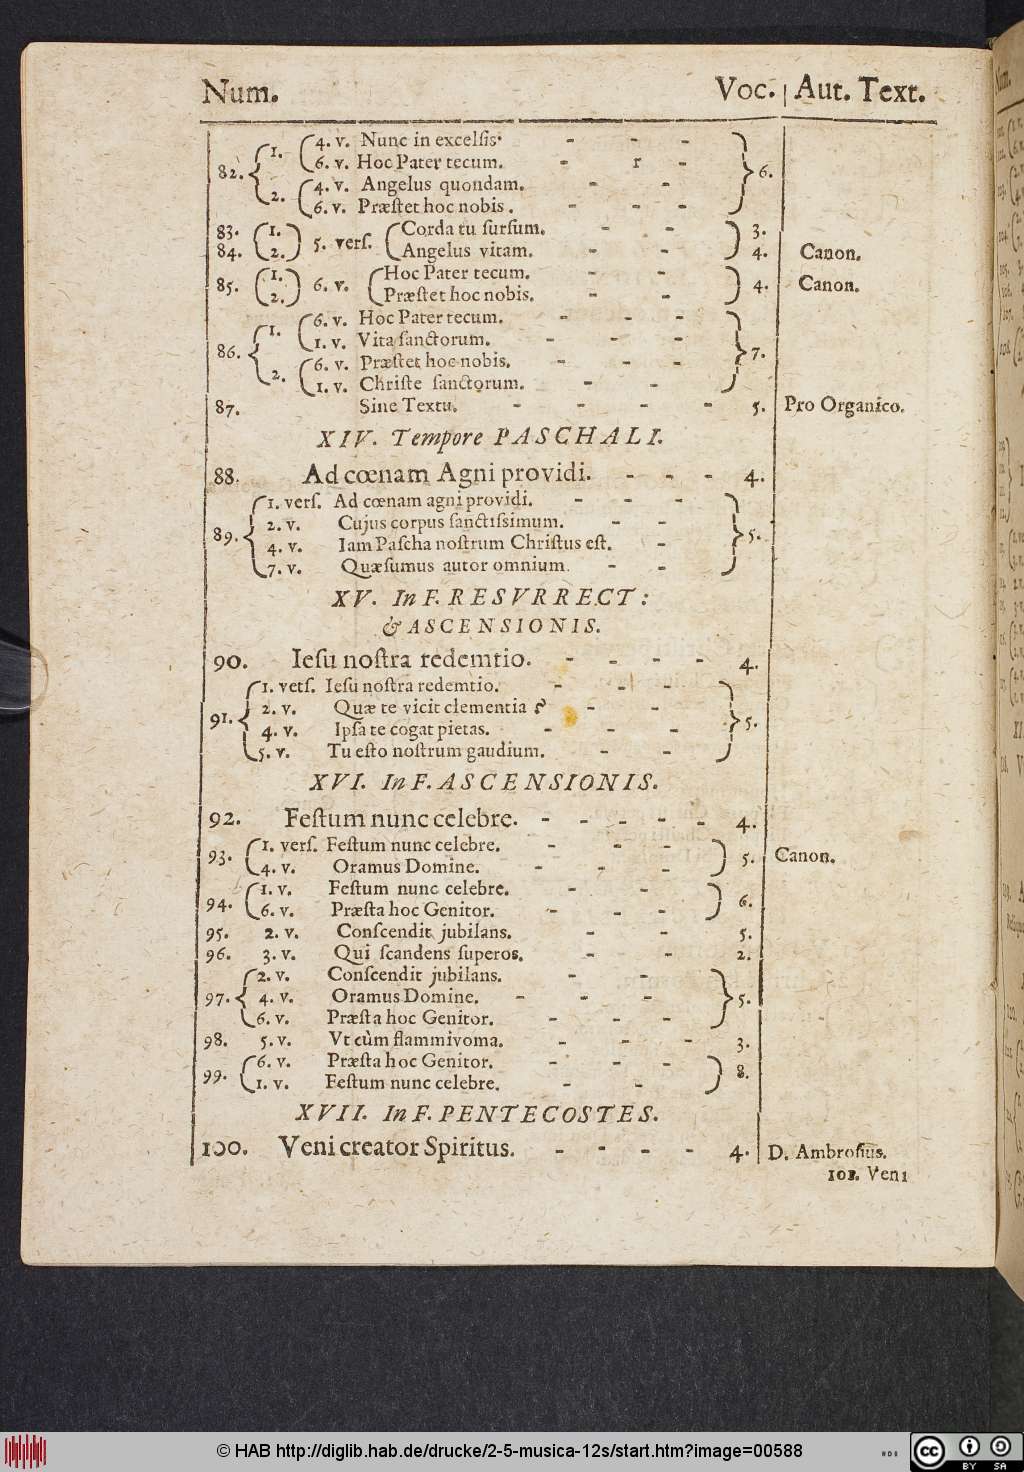 Num. Voc. Aut. Text.
82. 1. 4. v. Nunc in excelsis. - - - 6.
6. v. Hoc Pater tecum. - r -
2. 4. v. Angelus quondam. - -
6. v. Præstet hoc nobis. - - -
83. 1. 5. vers. Corda tu sursum. - - 3.
84. 2. Angelus vitam. - - 4. Canon.
85. 1. 6. v. Hoc Pater tecum. - - 4. Canon.
2. Præstet hoc nobis. - -
86. 1. 6. v. Hoc Pater tecum. - - - 7.
1. v. Vita sanctorum. - - -
2. 6. v. Præstet hoc nobis. - - -
1. v. Christe sanctorum. - -
87. Sine Textu. - - - - 5. Pro Organico.
XIV. Tempore PASCHALI.
88. Ad cœnam Agni providi. - - - 4.
89. 1. vers. Ad cœnam agni providi. - - - 5.
2. v. Cujus corpus sanctissimum. - -
4. v. Iam Pascha nostrum Christus est. -
7. v. Quæsumus autor omnium. - -
XV. In F. RESVRRECT:
& ASCENSIONIS.
90. Iesu nostra redemtio. - - - - 4.
91. 1. vers. Iesu nostra redemtio. - - - 5.
2. v. Quæ te vicit clementia ? - -
4. v. Ipsa te cogat pietas. - - -
5. v. Tu esto nostrum gaudium. - -
XVI. In F. ASCENSIONIS.
92. Festum nunc celebre. - - - - - 4.
93. 1. vers. Festum nunc celebre. - - - 5. Canon.
4. v. Oramus Domine. - - -
94. 1. v. Festum nunc celebre. - - 6.
6. v. Præsta hoc Genitor. - - -
95. 2. v. Conscendit jubilans. - - 5.
96. 3. v. Qui scandens superos. - - 2.
97. 2. v. Conscendit jubilans. - - 5.
4. v. Oramus Domine. - - -
6. v. Præsta hoc Genitor. - - -
98. 5. v. Vt cùm flammivoma. - - - 3.
99. 6. v. Præsta hoc Genitor. - - - 8.
1. v. Festum nunc celebre. - -
XVII. In F. PENTECOSTES.
100. Veni creator Spiritus. - - - - 4. D. Ambrosius.
101. Veni
© HAB http://diglib.hab.de/drucke/2-5-musica-12s/start.htm?image=00588
cc BY SA